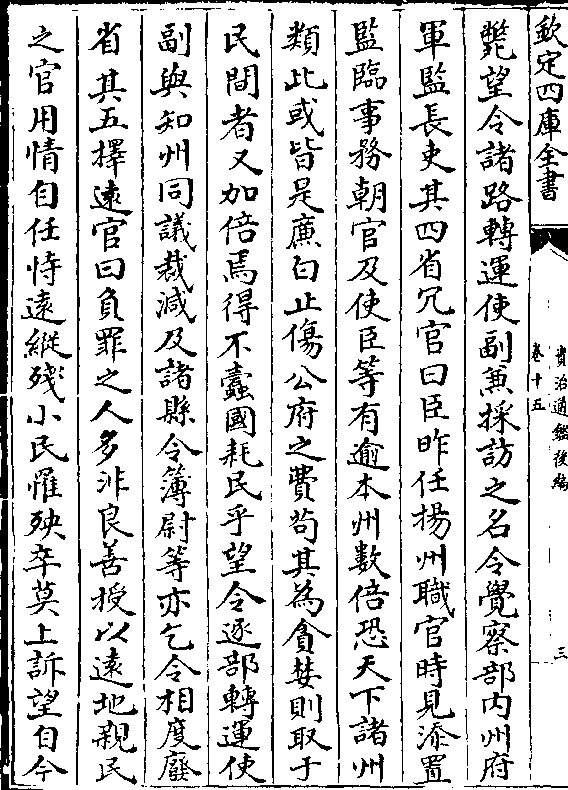 欽定四庫全書
資治通鑑後編
卷十五
三
斃望令諸路轉運使副兼採訪之名令覺察部内州府
軍監長吏其四省冗官曰臣昨任揚州職官時見添置
監臨事務朝官及使臣等有逾本州數倍恐天下諸州
類此或皆是廉白止傷公府之費苟其為貪婪則取于
民間者又加倍焉得不蠹國耗民乎望令逐部轉運使
副與知州同議裁減及諸縣令簿尉等亦乞令相度廢
省其五擇逺官曰負罪之人多非良善授以逺地親民
之官用情自任恃逺縱殘小民罹殃卒莫上訴望自今